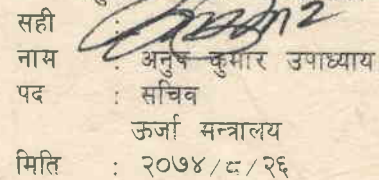 सही :
नाम : अनुप कुमार उपाध्याय
पद : सचिव
ऊर्जा मन्त्रालय
मिति : २०७४/८/२६